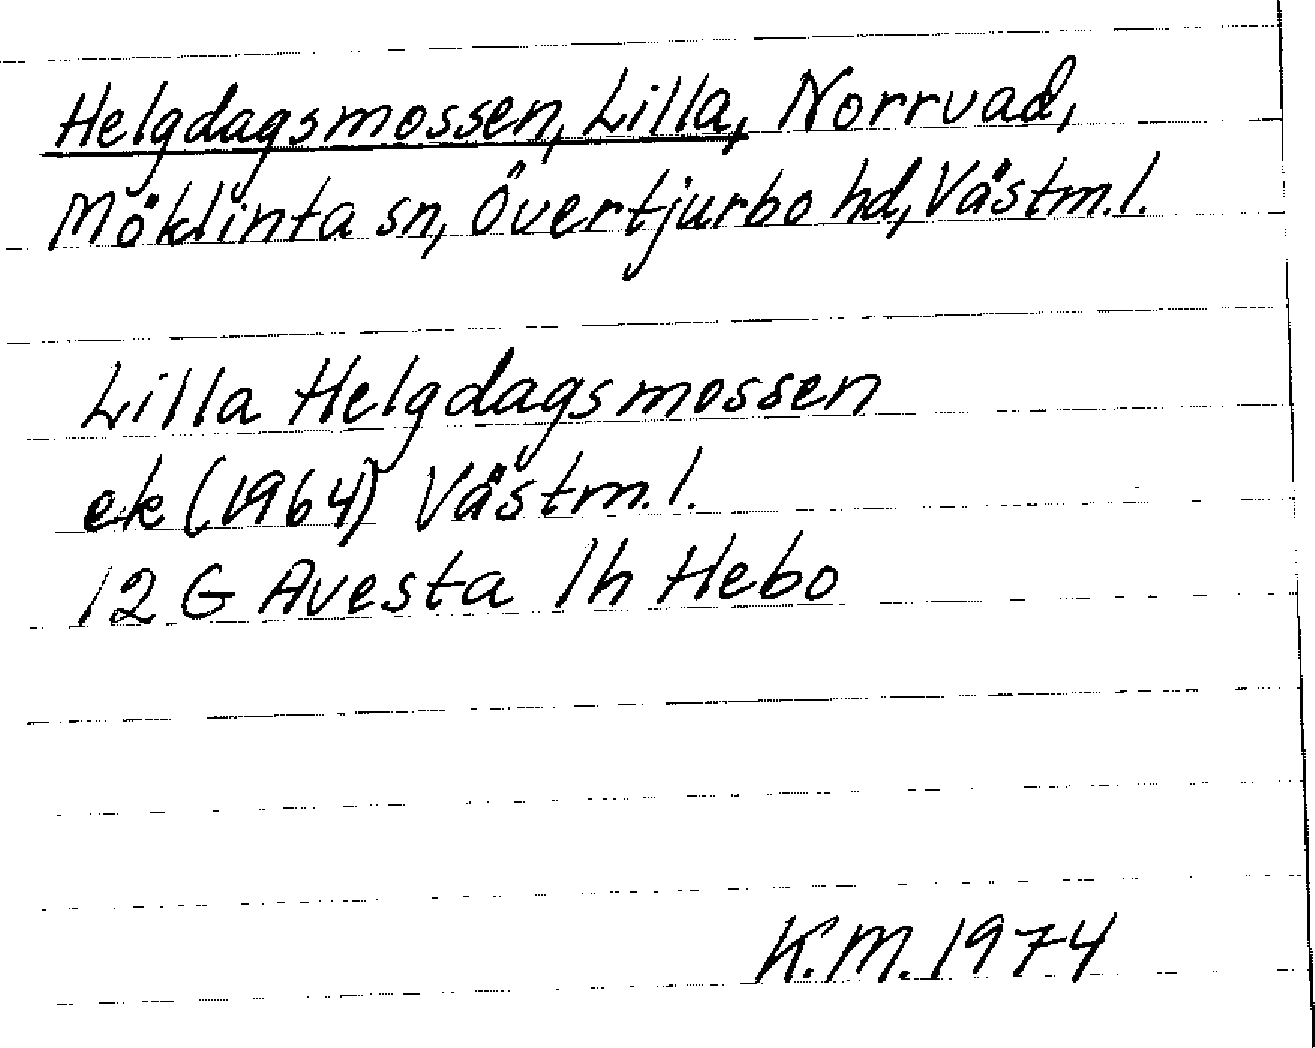 Helgdagsmossen, Lilla, Norrvad,
Möklinta sn, Övertjurbo hd, Västm.l.
Lilla Helgdagsmossen
ek (1964) Västm.l.
12 G Avesta 1h Hebo
K.M. 1974